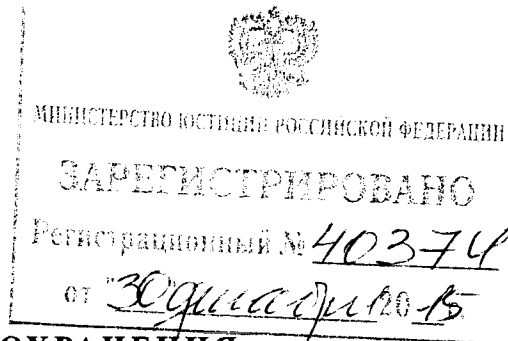 МИНИСТЕРСТВО ЮСТИЦИИ РОССИЙСКОЙ ФЕДЕРАЦИИ
ЗАРЕГИСТРИРОВАНО
Регистрационный № 40374
от "30 декабря 2015
ОХРАНЕНИЯ